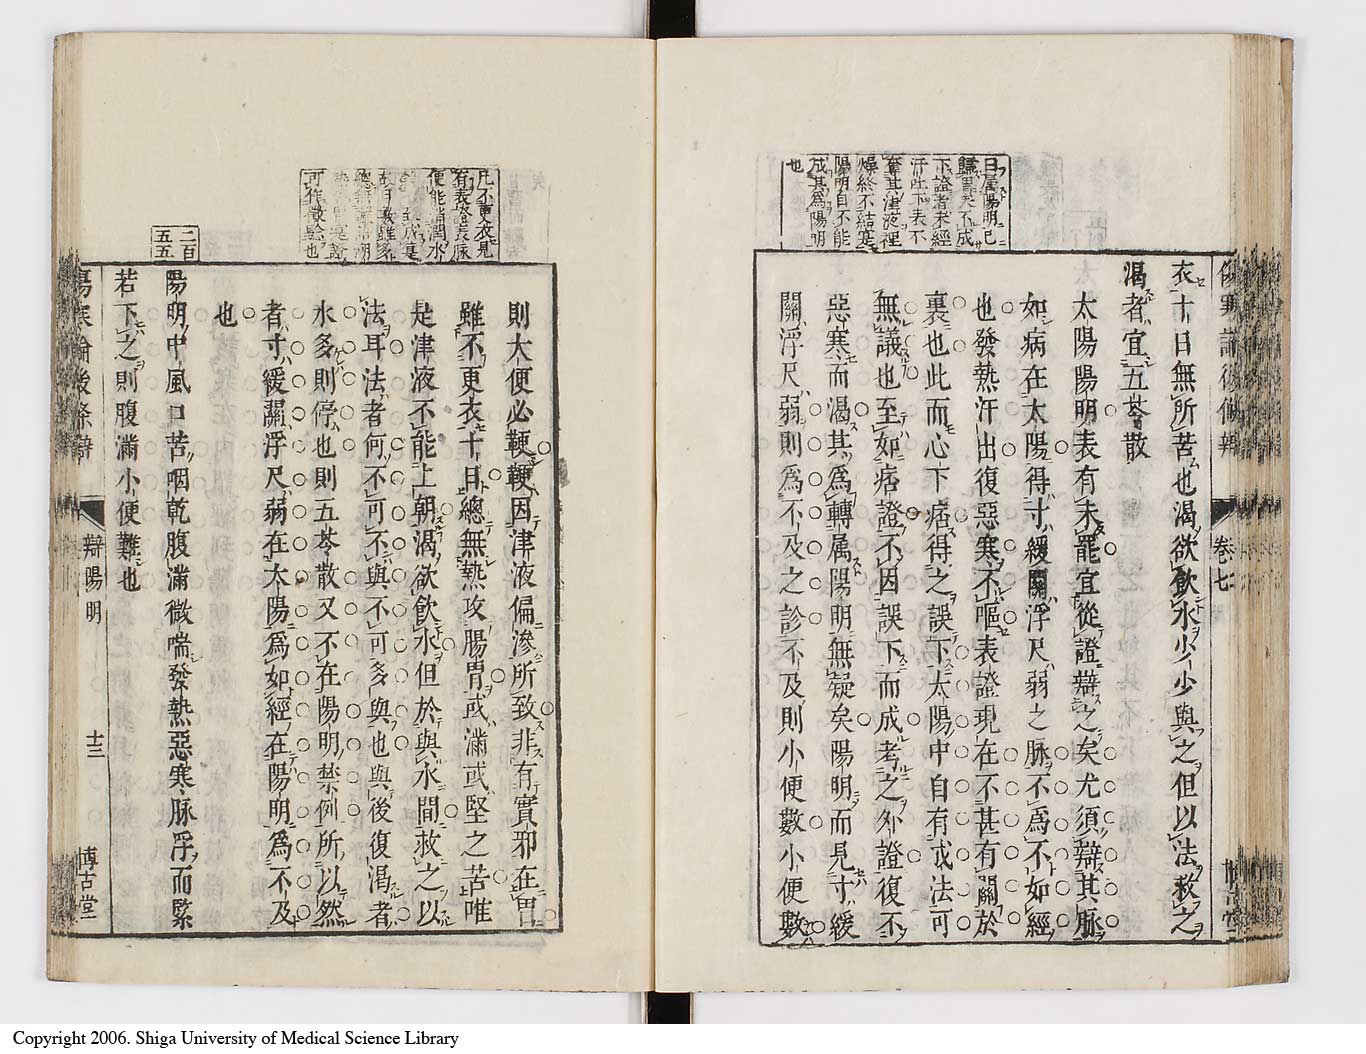 日屬陽明已
歸胃夫不成
下證者未經
汗吐下表不
奪其津液裡
燥終不結寔
陽明自不能
成其爲陽明
也
卷七
衣十日無所苦也渴欲飮水少少與之但以法救之
渴者宜五苓散
太陽陽明表有未罷宜從證辯之矣尤須辯其脉
如病在太陽得寸緩關浮尺弱之脉不爲不如經
也發熱汗出復惡寒不嘔表證現在不甚有關於
裏也此而心下痞得之誤下太陽中自有成法可
無議也至如痞證不因誤下而成考之外證復不
惡寒而渴其爲轉属陽明無疑矣陽明而見寸緩
關浮尺弱則爲不及之診不及則小便數小便數
凡不更衣見
有表證表脉
便能消潤水
可作徵驗也
則大便必鞕鞕因津液偏滲所致非有實邪在胃
雖不更衣十日總無熱攻腸胃或滿或堅之苦唯
是津液不能上朝渴欲飮水但於與水間救之以
法耳法者何不可不與不可多與也與後復渴者
水多則停也則五苓散又不在陽明禁例所以然
者寸緩關浮尺弱在太陽爲如經在陽明爲不及
也
二百
五五
陽明中風口苦咽乾腹滿微喘發熱惡寒脉浮而緊
若下之則腹滿小便難也
傷寒論後條辯
辯陽明
十三
博古堂
Copyright 2006. Shiga University of Medical Science Library